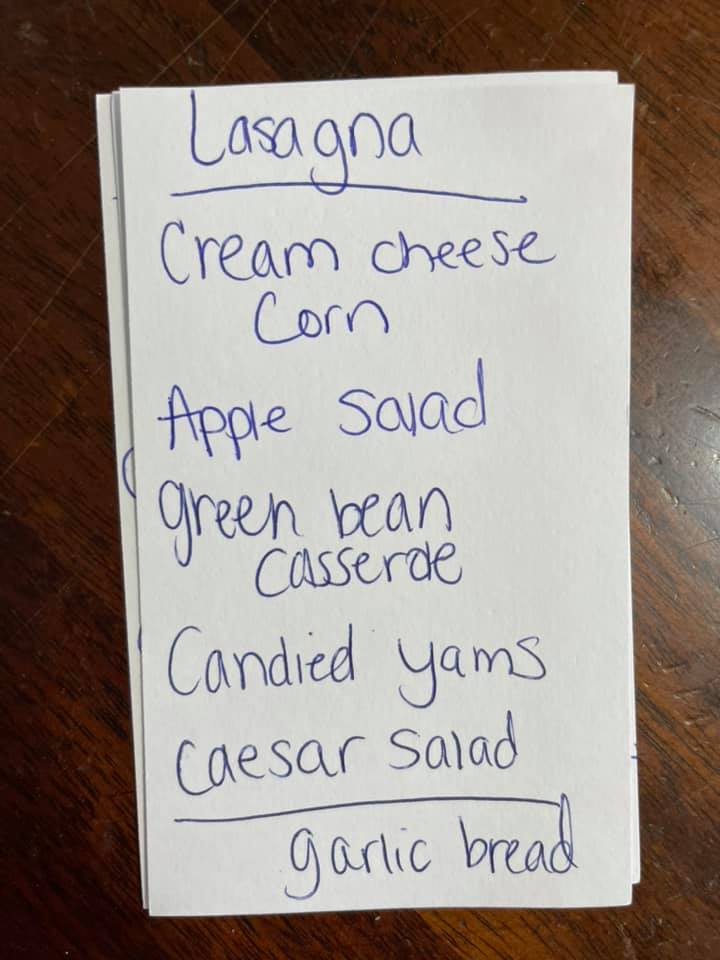 Lasagna
Cream cheese
Corn
Apple Salad
green bean
casserole
Candied yams
Caesar Salad
garlic bread